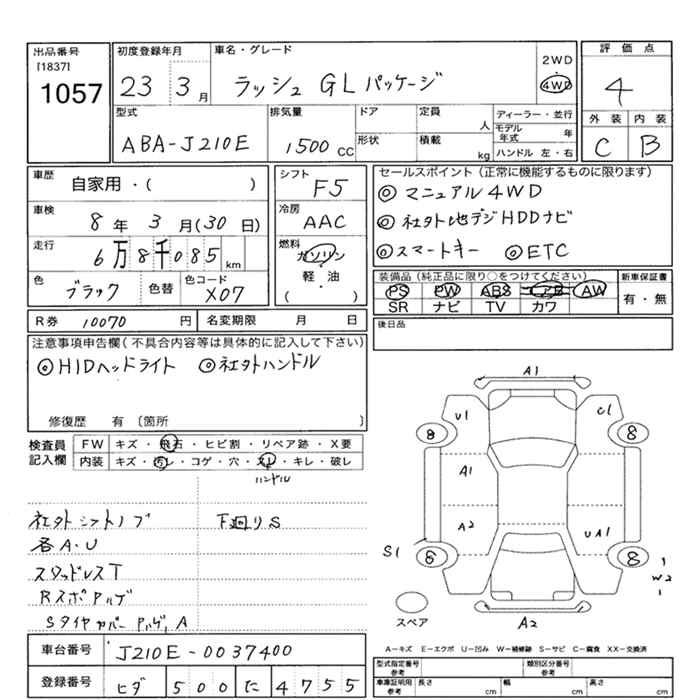 出品番号
[1837]
1057
初度登録年月
23 3月
車名・グレード
ラッシュ GLパッケージ
2WD
4WD
評価点
4
外装 内装
C B
型式
ABA-J210E
排気量
1500 cc
ドア
形状
定員
人
積載
kg
ディーラー・並行
モデル年式 年
ハンドル 左・右
車歴
自家用・( )
車検
8年 3月(30日)
走行
6万8千085 km
色
ブラック
色替
色コード
X07
シフト
F5
冷房
AAC
燃料
ガソリン
軽・油
( )
セールスポイント(正常に機能するものに限ります)
◎ マニュアル4WD
◎ 社外地デジHDDナビ
◎スマートキー ◎ETC
装備品(純正品に限り○をつけてください)
PS PW ABS エアB AW
SR ナビ TV カワ
新車保証書
有・無
R券 10070 円
名変期限 月 日
後日品
注意事項申告欄(不具合内容等は具体的に記入して下さい)
◎HIDヘッドライト ◎社外ハンドル
修復歴 有〔箇所
検査員記入欄
FW キズ・飛石・ヒビ割・リペア跡・X要
内装 キズ・汚レ・コゲ・穴・スレ・キレ・破レ
ハンドル
社外シフトノブ
下廻りS
各A・U
スタッドレスT
RスポAルゲ
SタイヤカバーAルゲ,A
A1
U1 C1
8 8
A1
A2 UA1
S1 6 8
1
W2
1
スペア
A2
A－キズ E－エクボ U－凹み W－補修跡 S－サビ C－腐食 XX－交換済
車台番号
J210E-0037400
登録番号
ヒダ 500 た 4755
型式指定番号
参考
類別区分番号
参考
車庫証明用
参考
長さ cm
幅 cm
高さ cm